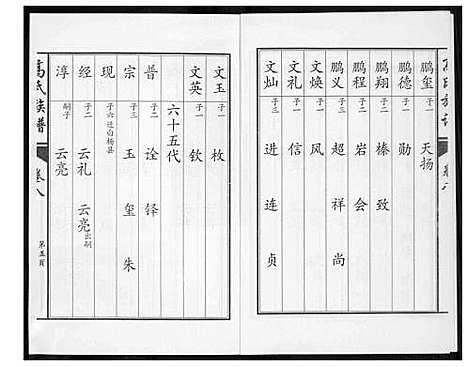 鹏玺 子一 天扬
鹏德 子一 勋
鹏翔 子二 榛 致
鹏程 子二 岩 会
鹏义 子三 超 祥 尚
文焕 子一 风
文礼 子一 信
文灿 子三 进 连 贞
文玉 子一 枚
文英 子一 钦
六十五代
普 子二 诠 铎
宗 子三 玉 玺 朱
现 子六迁白杨县
经 子二 云礼 云亮出嗣
淳 嗣子 云亮
高氏族谱 卷八
第五页